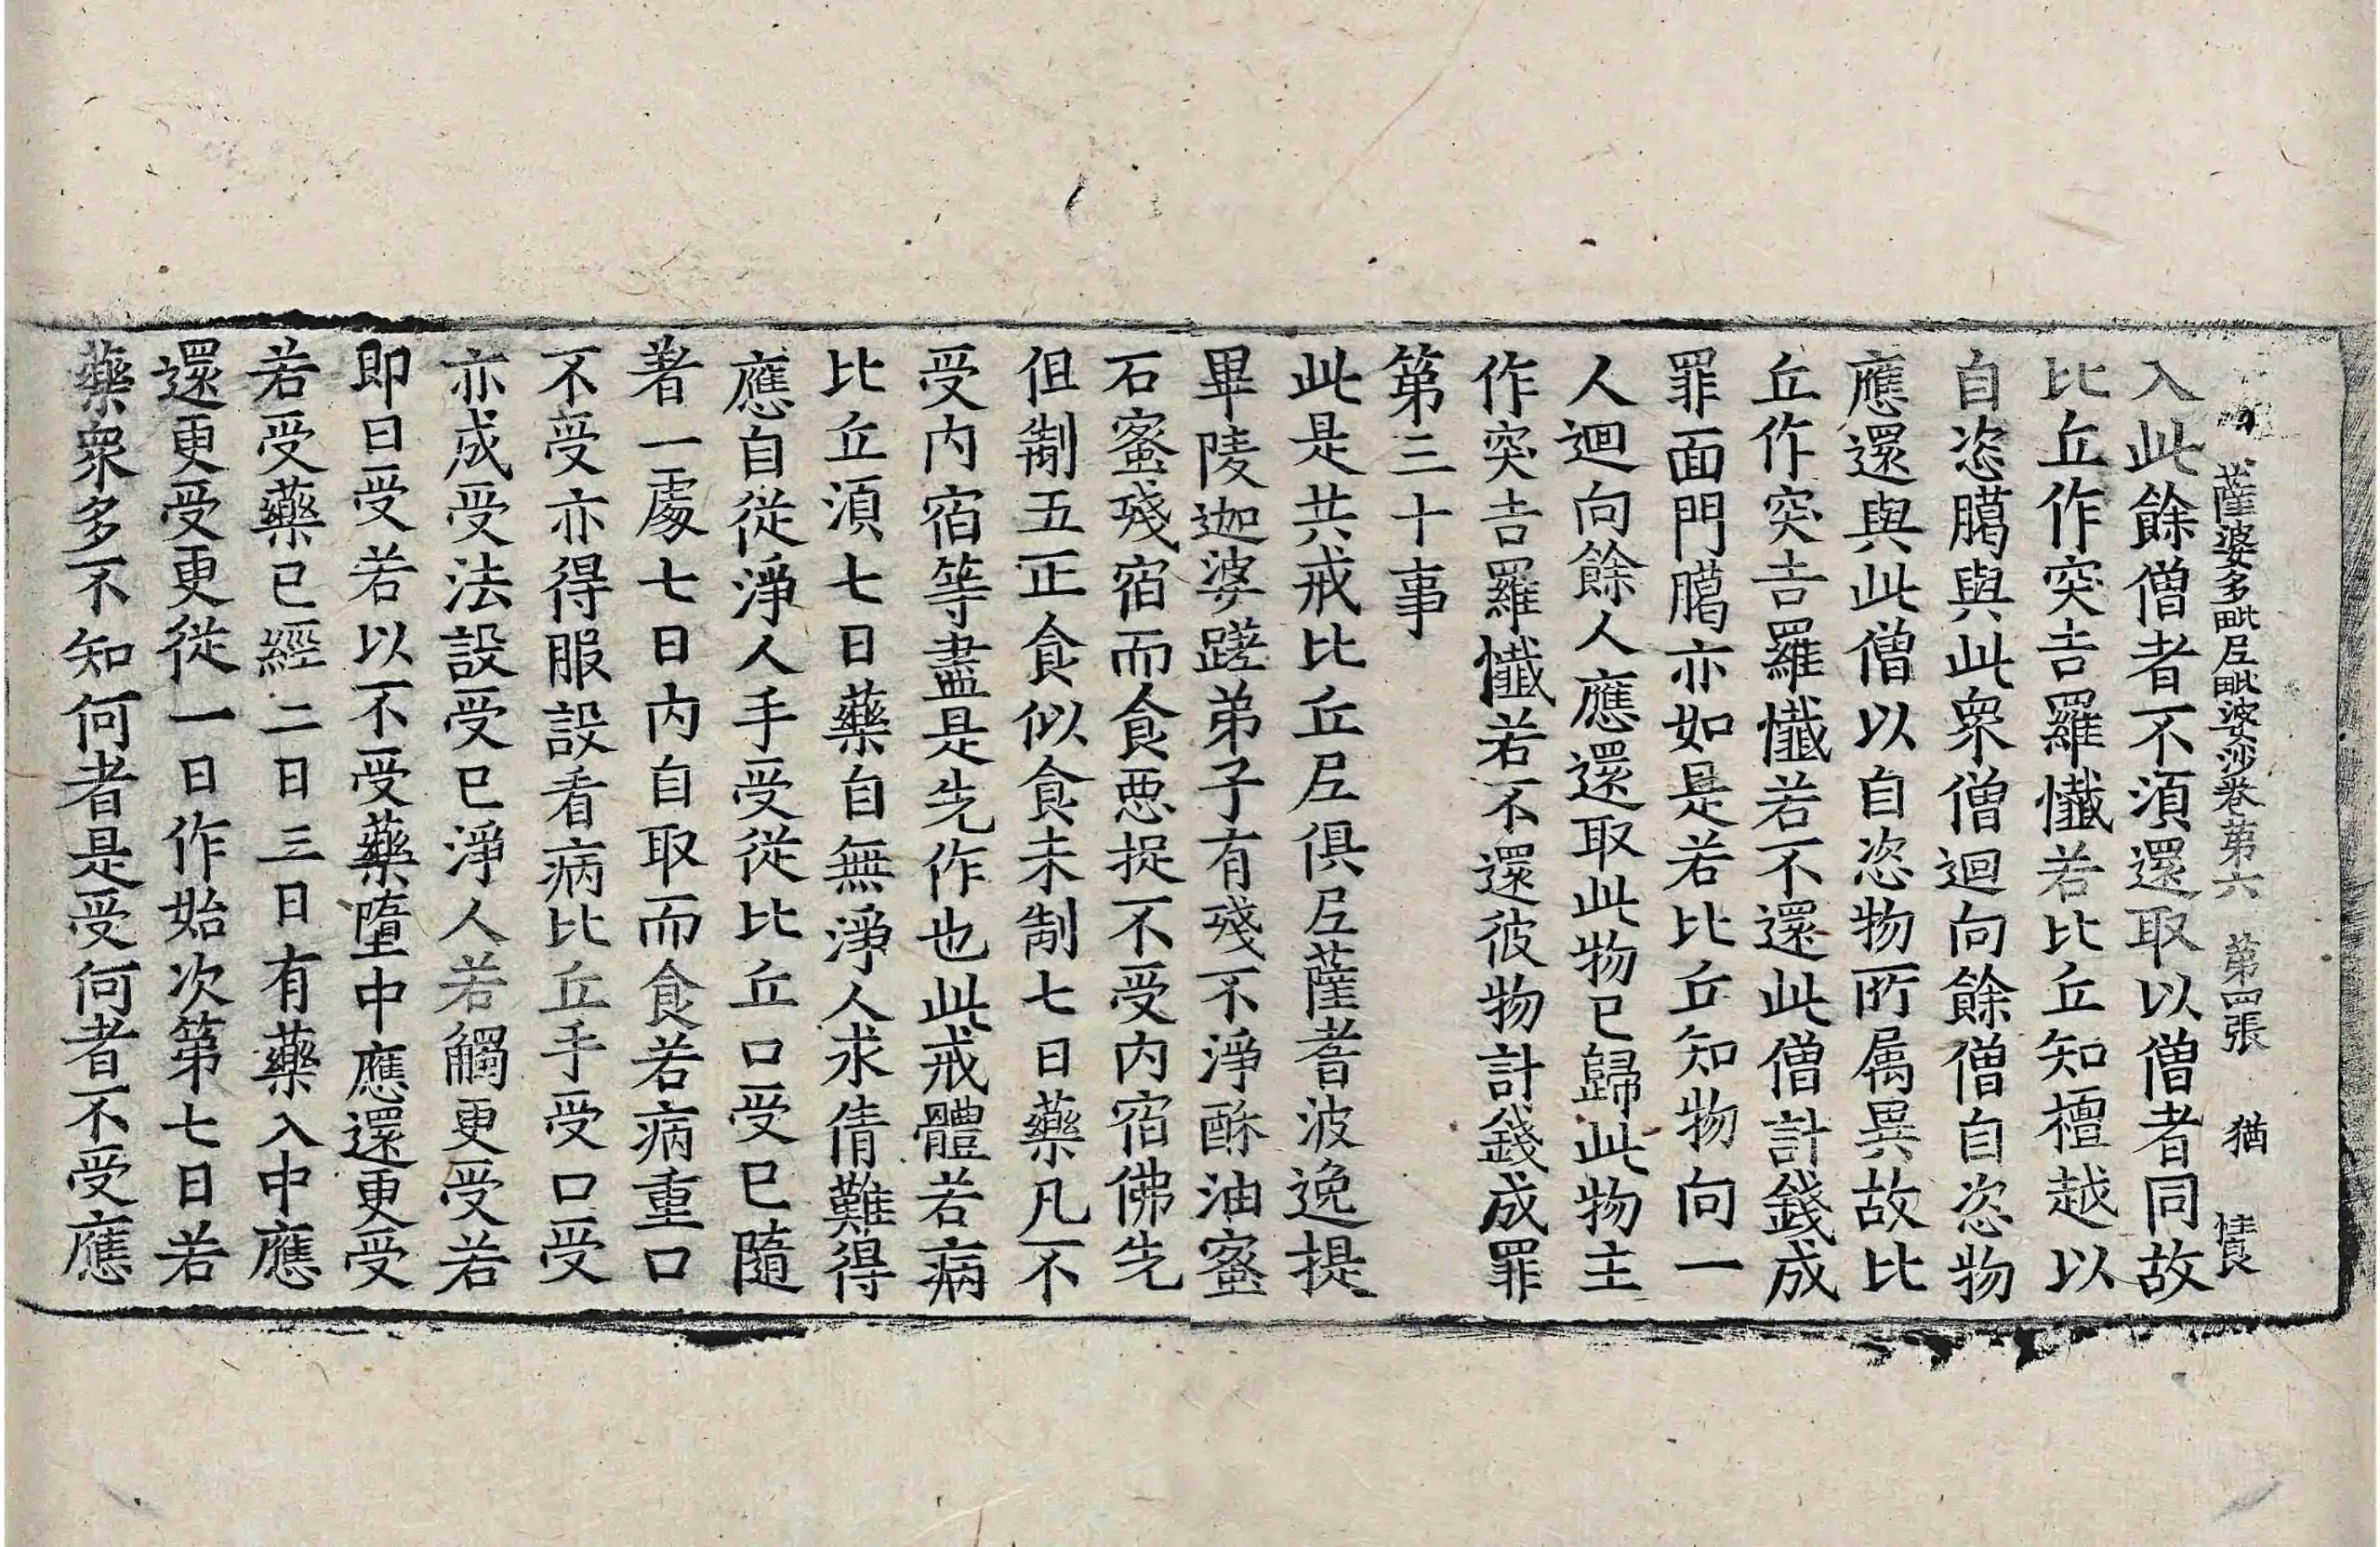 薩婆多毗𡰱毗婆沙卷第六　第四張　猶
入此餘僧者不湏還取以僧者同故
比丘作突吉羅懺若比丘知檀越以
自恣臈與此衆僧迴向餘僧自恣物
應還與此僧以自恣物所属異故比
丘作突吉羅懺若不還此僧計錢成
罪面門臈亦如是若比丘知物向一
人迴向餘人應還取此物已歸此物主
作突吉羅懺若不還彼物計錢成罪
第三十事
此是共戒比丘𡰱俱𡰱薩耆波逸提
畢陵迦婆蹉弟子有殘不淨酥油蜜
石蜜殘宿而食惡捉不受内宿佛先
但制五正食似食未制七日藥凡不
受内宿等盡是先作也此戒體若病
比丘湏七日藥自無淨人求倩難得
應自從淨人手受從比丘口受已隨
著一處七日内自取而食若病重口
不受亦得服設看病比丘手受口受
亦成受法設受已淨人若觸更受若
即日受若以不受藥墮中應還更受
若受藥已經二日三日有藥入中應
還更受更從一日作始次第七日若
藥衆多不知何者是受何者不受應